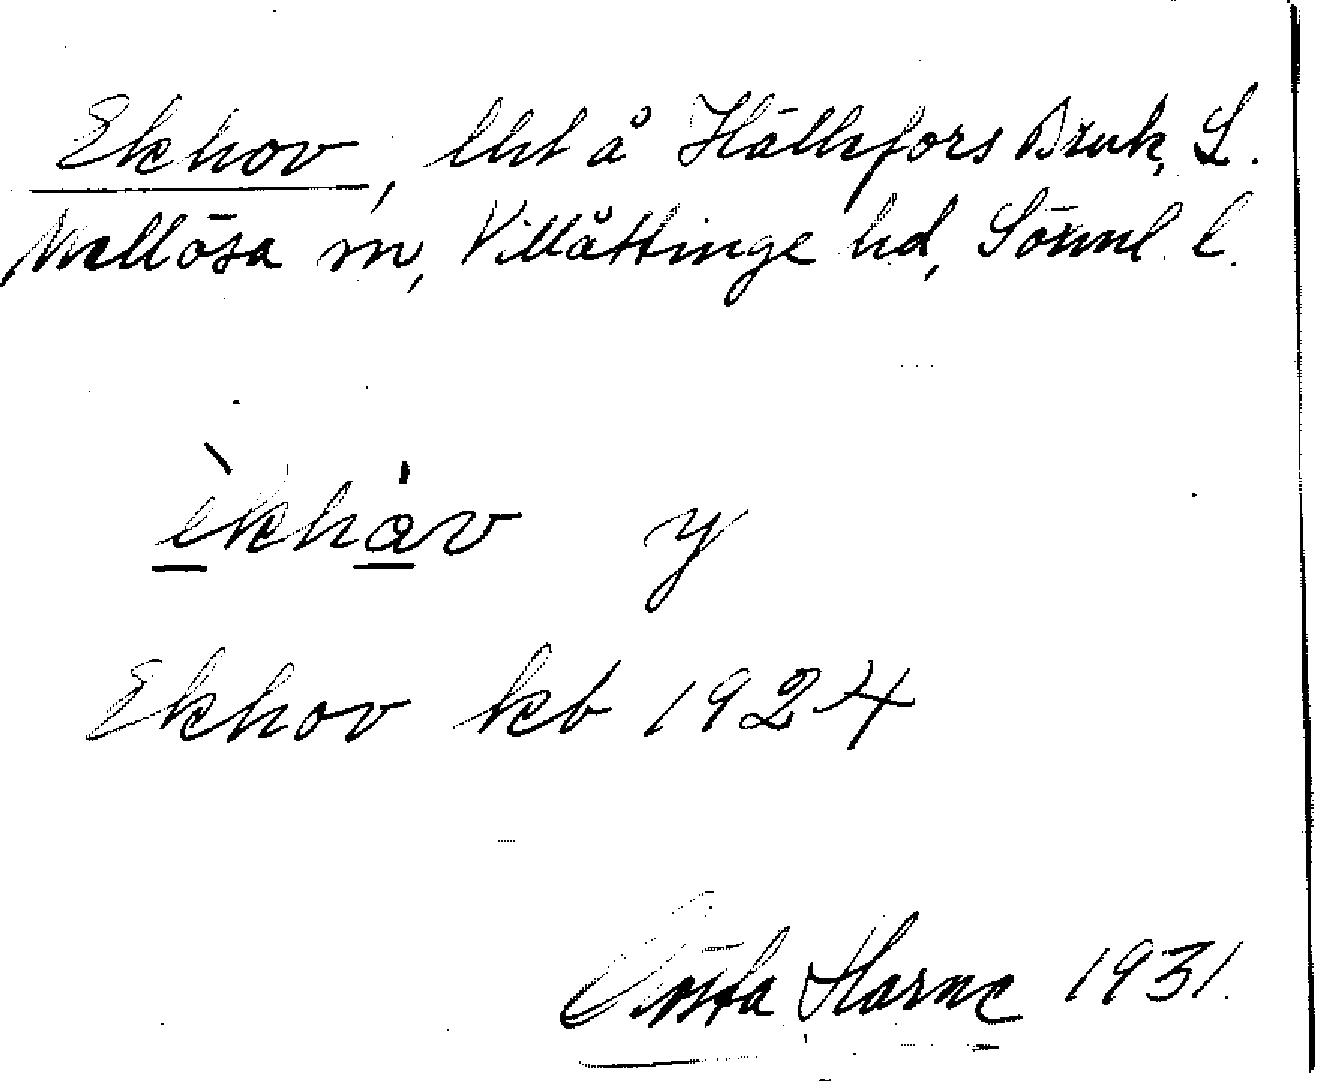 Ekhov, lht å Hällefors Bruk, L.
Mellösa sn, Villåttinge hd, Sörml. l.
èkhåv y
Ekhov kb 1924
Gösta Harne 1931.